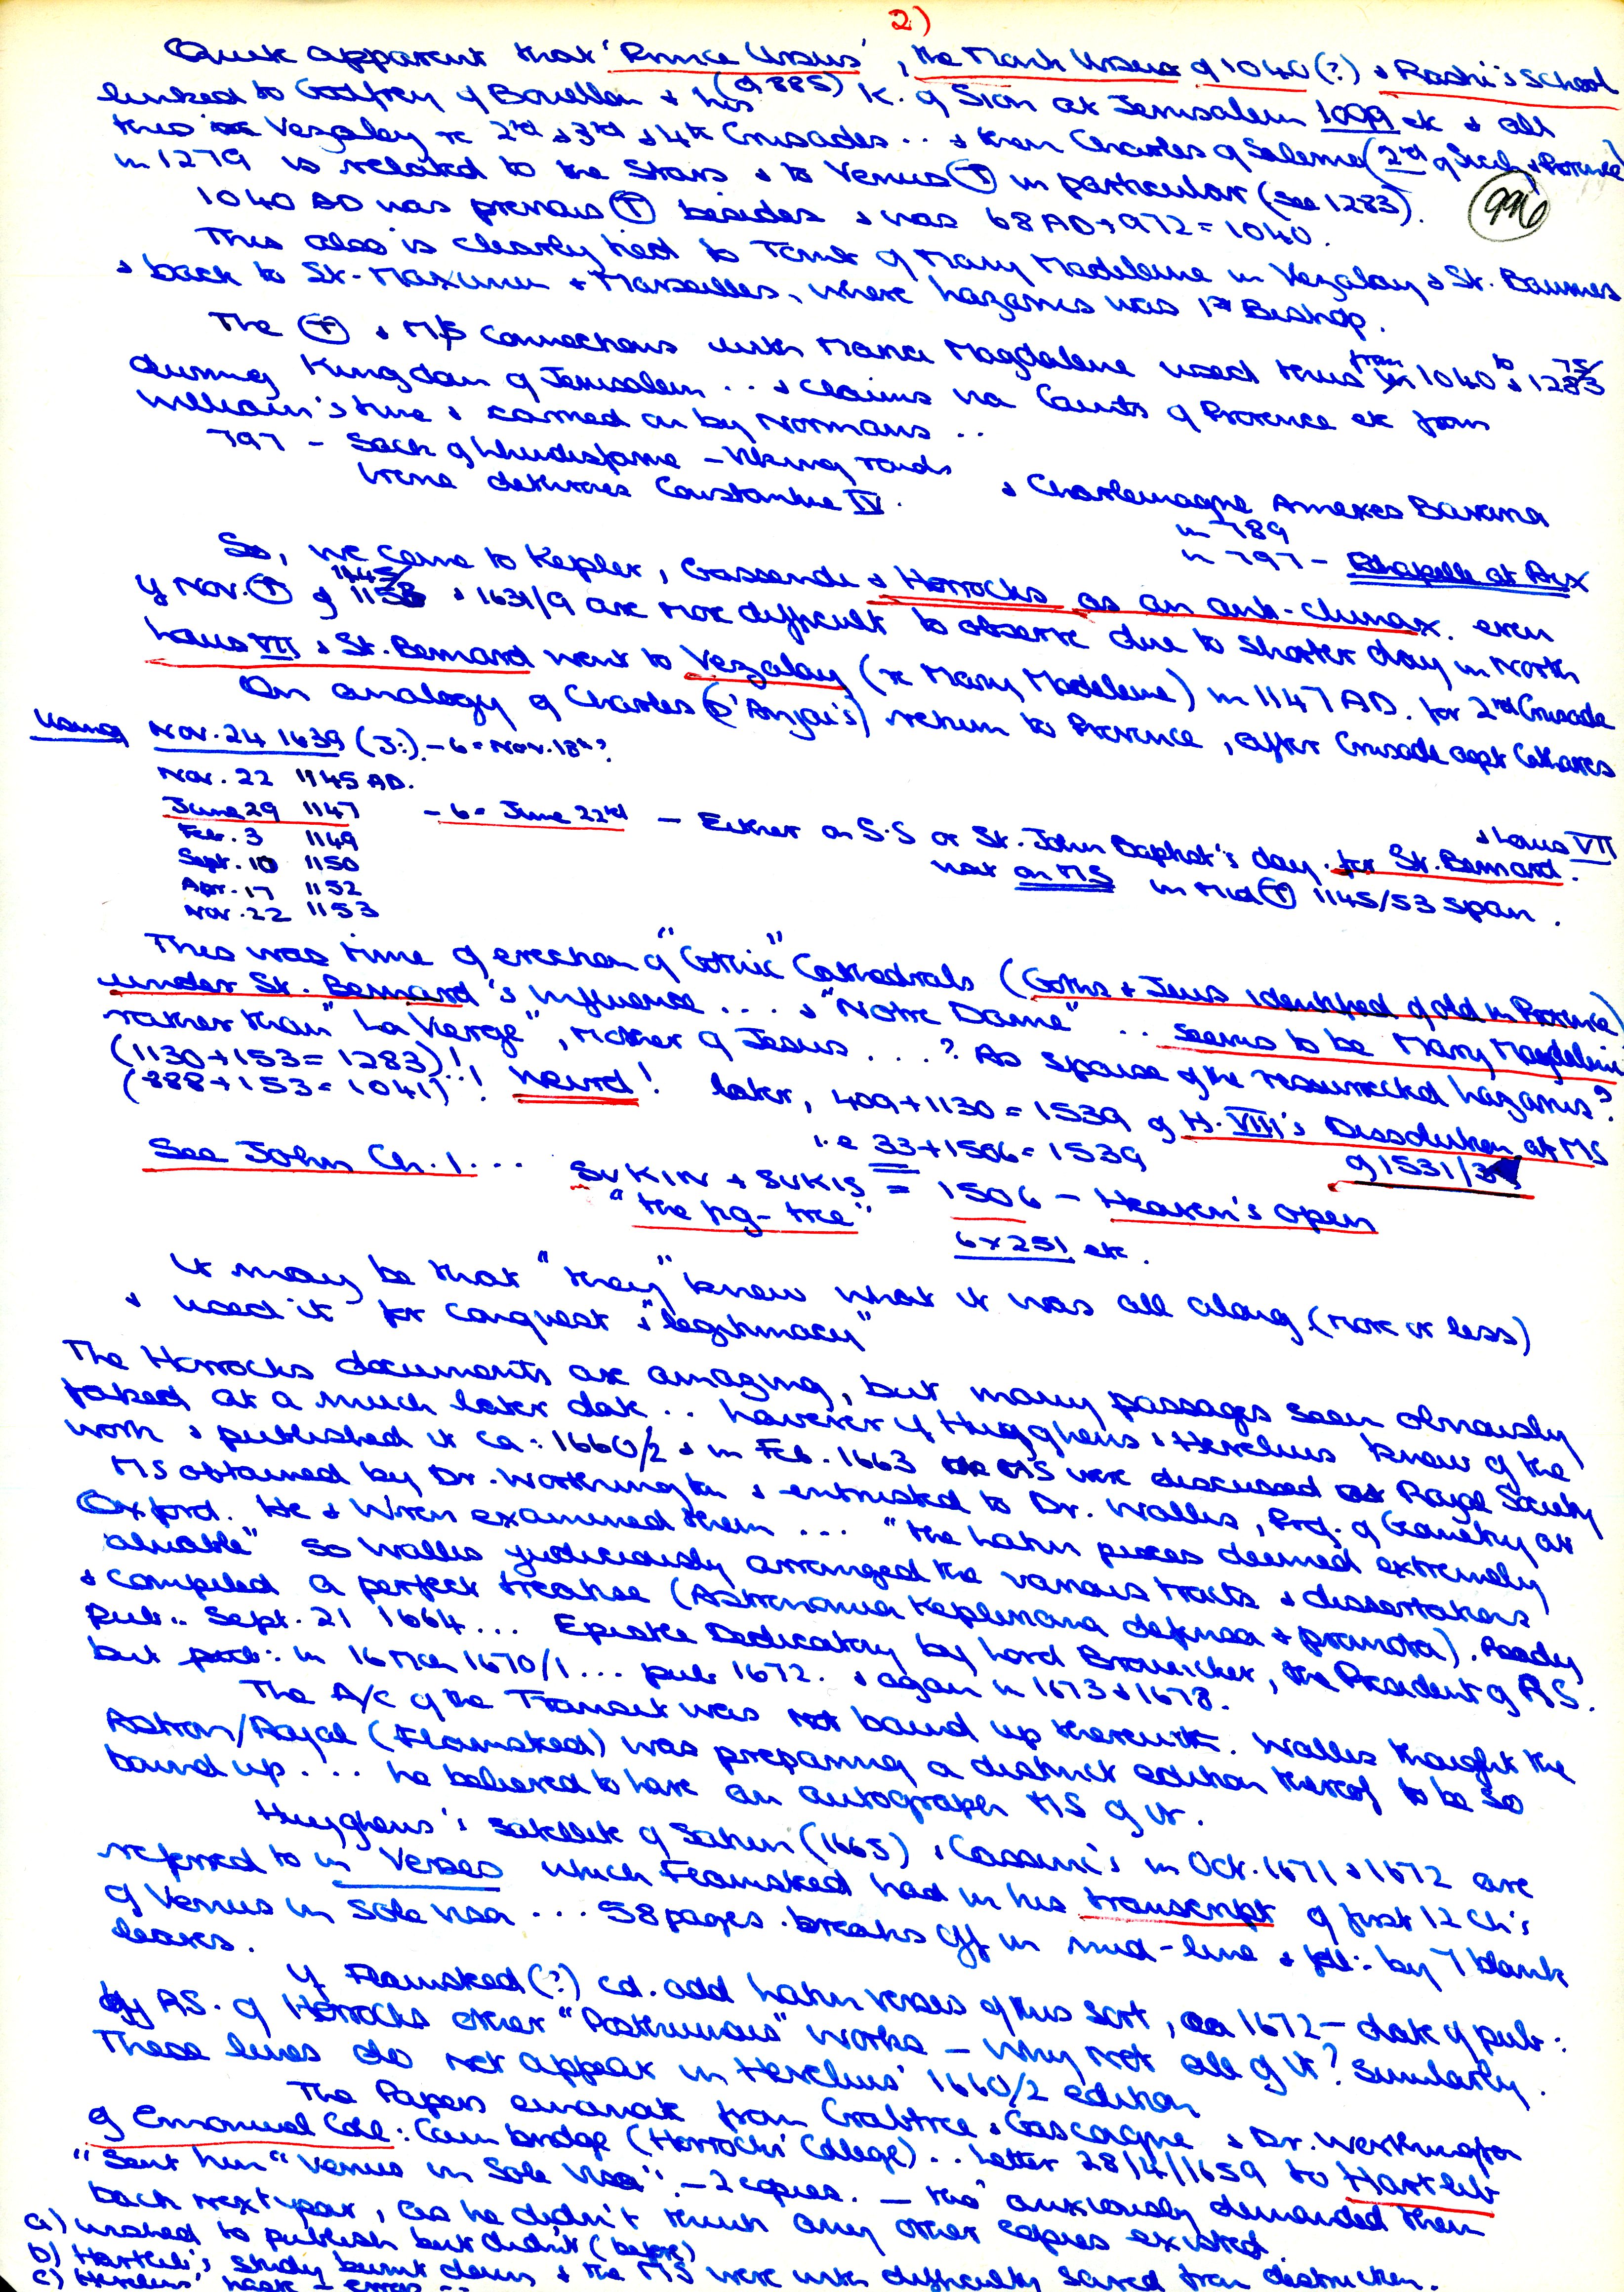 2)
Quite apparent that 'Prince Ursus', the Monk Ursus of 1040(?) & Rashi's School
linked to Godfrey of Bouellon & his (of 885) K. of Sion at Jerusalem 1099 etc & all
this Vezalay re 2nd & 3rd & 4th Crusades .. & then Charles of Salerno (2nd of Sicily & Provence)
in 1279 is related to the Stars & to Venus Ⓣ in particular (see 1283).
996
1040 AD was previous Ⓣ besides & was 68 AD + 972 = 1040.
This also is clearly tied to Tomb of Mary Madeleine in Vezalay & St. Baumes
& back to St. Maximin & Marseilles, where Lazarus was 1st Bishop.
The Ⓣ & M/S Connections with Maria Magdalene used thus from 1040 to 1283 75/
during Kingdom of Jerusalem .. & claims via Counts of Provence etc from
William's time & carried on by Normans ..
797 - Sack of Lhindisfarne - Viking raids
Irene dethrones Constantine IV.
& Charlemagne Annexes Bavaria
in 789
in 797 - Chapelle at Aix
So, we come to Kepler, Gassendi & Horrocks as an anti-climax. even
if Nov. Ⓣ of 1145/ 1153 & 1631/9 are more difficult to observe due to shorter day in North
Louis VII & St. Bernard went to Vezalay (re Mary Madeleine) in 1147 AD. for 2nd Crusade
On analogy of Charles (D'Anjou's) return to Provence, after Crusade agst Cathares
Using Nov. 24 1639 (J:) - 6 = Nov. 18th?
Nov. 22 1145 AD.
June 29 1147 - 6 = June 22nd - Either on S.S or St. John Baptist's day for St. Bernard. & Louis VII
Feb. 3 1149
not on MS in Mid Ⓣ 1145/53 span.
Sept. 10 1150
Apr. 17 1152
Nov. 22 1153
This was time of erection of "Gothic" Cathedrals (Goths & Jews identified of old in Provence)
under St. Bernard's influence ... & "Notre Dame" .. seems to be Mary Magdeline
rather than "La Vierge", Mother of Jesus ...? As spouse of the resurrected Lazarus?
(1130 + 153 = 1283)!
(888 + 153 = 1041)..! Weird! later, 409 + 1130 = 1539 of H. VIII's Dissolution at MS
i.e 33 + 1506 = 1539
of 1531/3
See John Ch. 1 ... SVKIN + SVKIS = 1506 - Heaven's open
"the fig-tree"
6 x 251 etc.
It may be that "they" knew what it was all along (more or less)
& used it for conquest & "legitimacy"
The Horrocks documents are amazing, but many passages seem obviously
faked at a much later date .. however if Huyghens & Hevelius knew of the
work & published it ca: 1660/2 & in Feb. 1663 MS were discussed at Royal Society
MS obtained by Dr. Worthington & entrusted to Dr. Wallis, Prof. of Geometry at
Oxford. He & Wren examined them ... "the Latin pieces deemed extremely
aluable" so Wallis judiciously arranged the various tracts & dissertations
& compiled a perfect treatise (Astronomia Kepleriana defensa & promota). Ready
Pub:. Sept. 21 1664 ... Epistle Dedicatory by Lord Brouncker, the President of RS.
but in 16 March 1670/1 ... pub. 1672. & again in 1673 & 1678.
The A/C of the Transit was not bound up therewith. Wallis thought the
Astron/Royal (Flamsteed) was preparing a distinct edition thereof to be so
bound up ... he believed to have an autograph MS of it.
Huyghens' satellite of Saturn (1665) & Cassini's in Oct. 1671 & 1672 are
referred to in Verses which Flamsteed had in his transcript of first 12 Ch's
of Venus in Sole Visa ... 58 pages. breaks off in mid-line & foll: by 7 blank
leaves.
If Flamsteed(?) cd. add Latin verses of this sort, ca 1672 - date of pub:
by RS. of Horrocks other "Posthumous" works - why not all of it? Similarly.
These lines do not appear in Hevelius' 1660/2 edition
The Papers emanate from Crabtree & Gascoigne & Dr. Worthington
of Emanuel Coll: Cambridge (Horrocks' College) .. Letter 28/4/1659 to Hartlib
"Sent him "Venus in Sole Visa". - 2 copies. - tho' anxiously demanded them
back next year, as he didn't think any other copies existed.
a) wished to publish but didn't (before)
b) Hartlib's study burnt down & the MS were with difficulty saved from destruction.
c) Hevelius' book - error